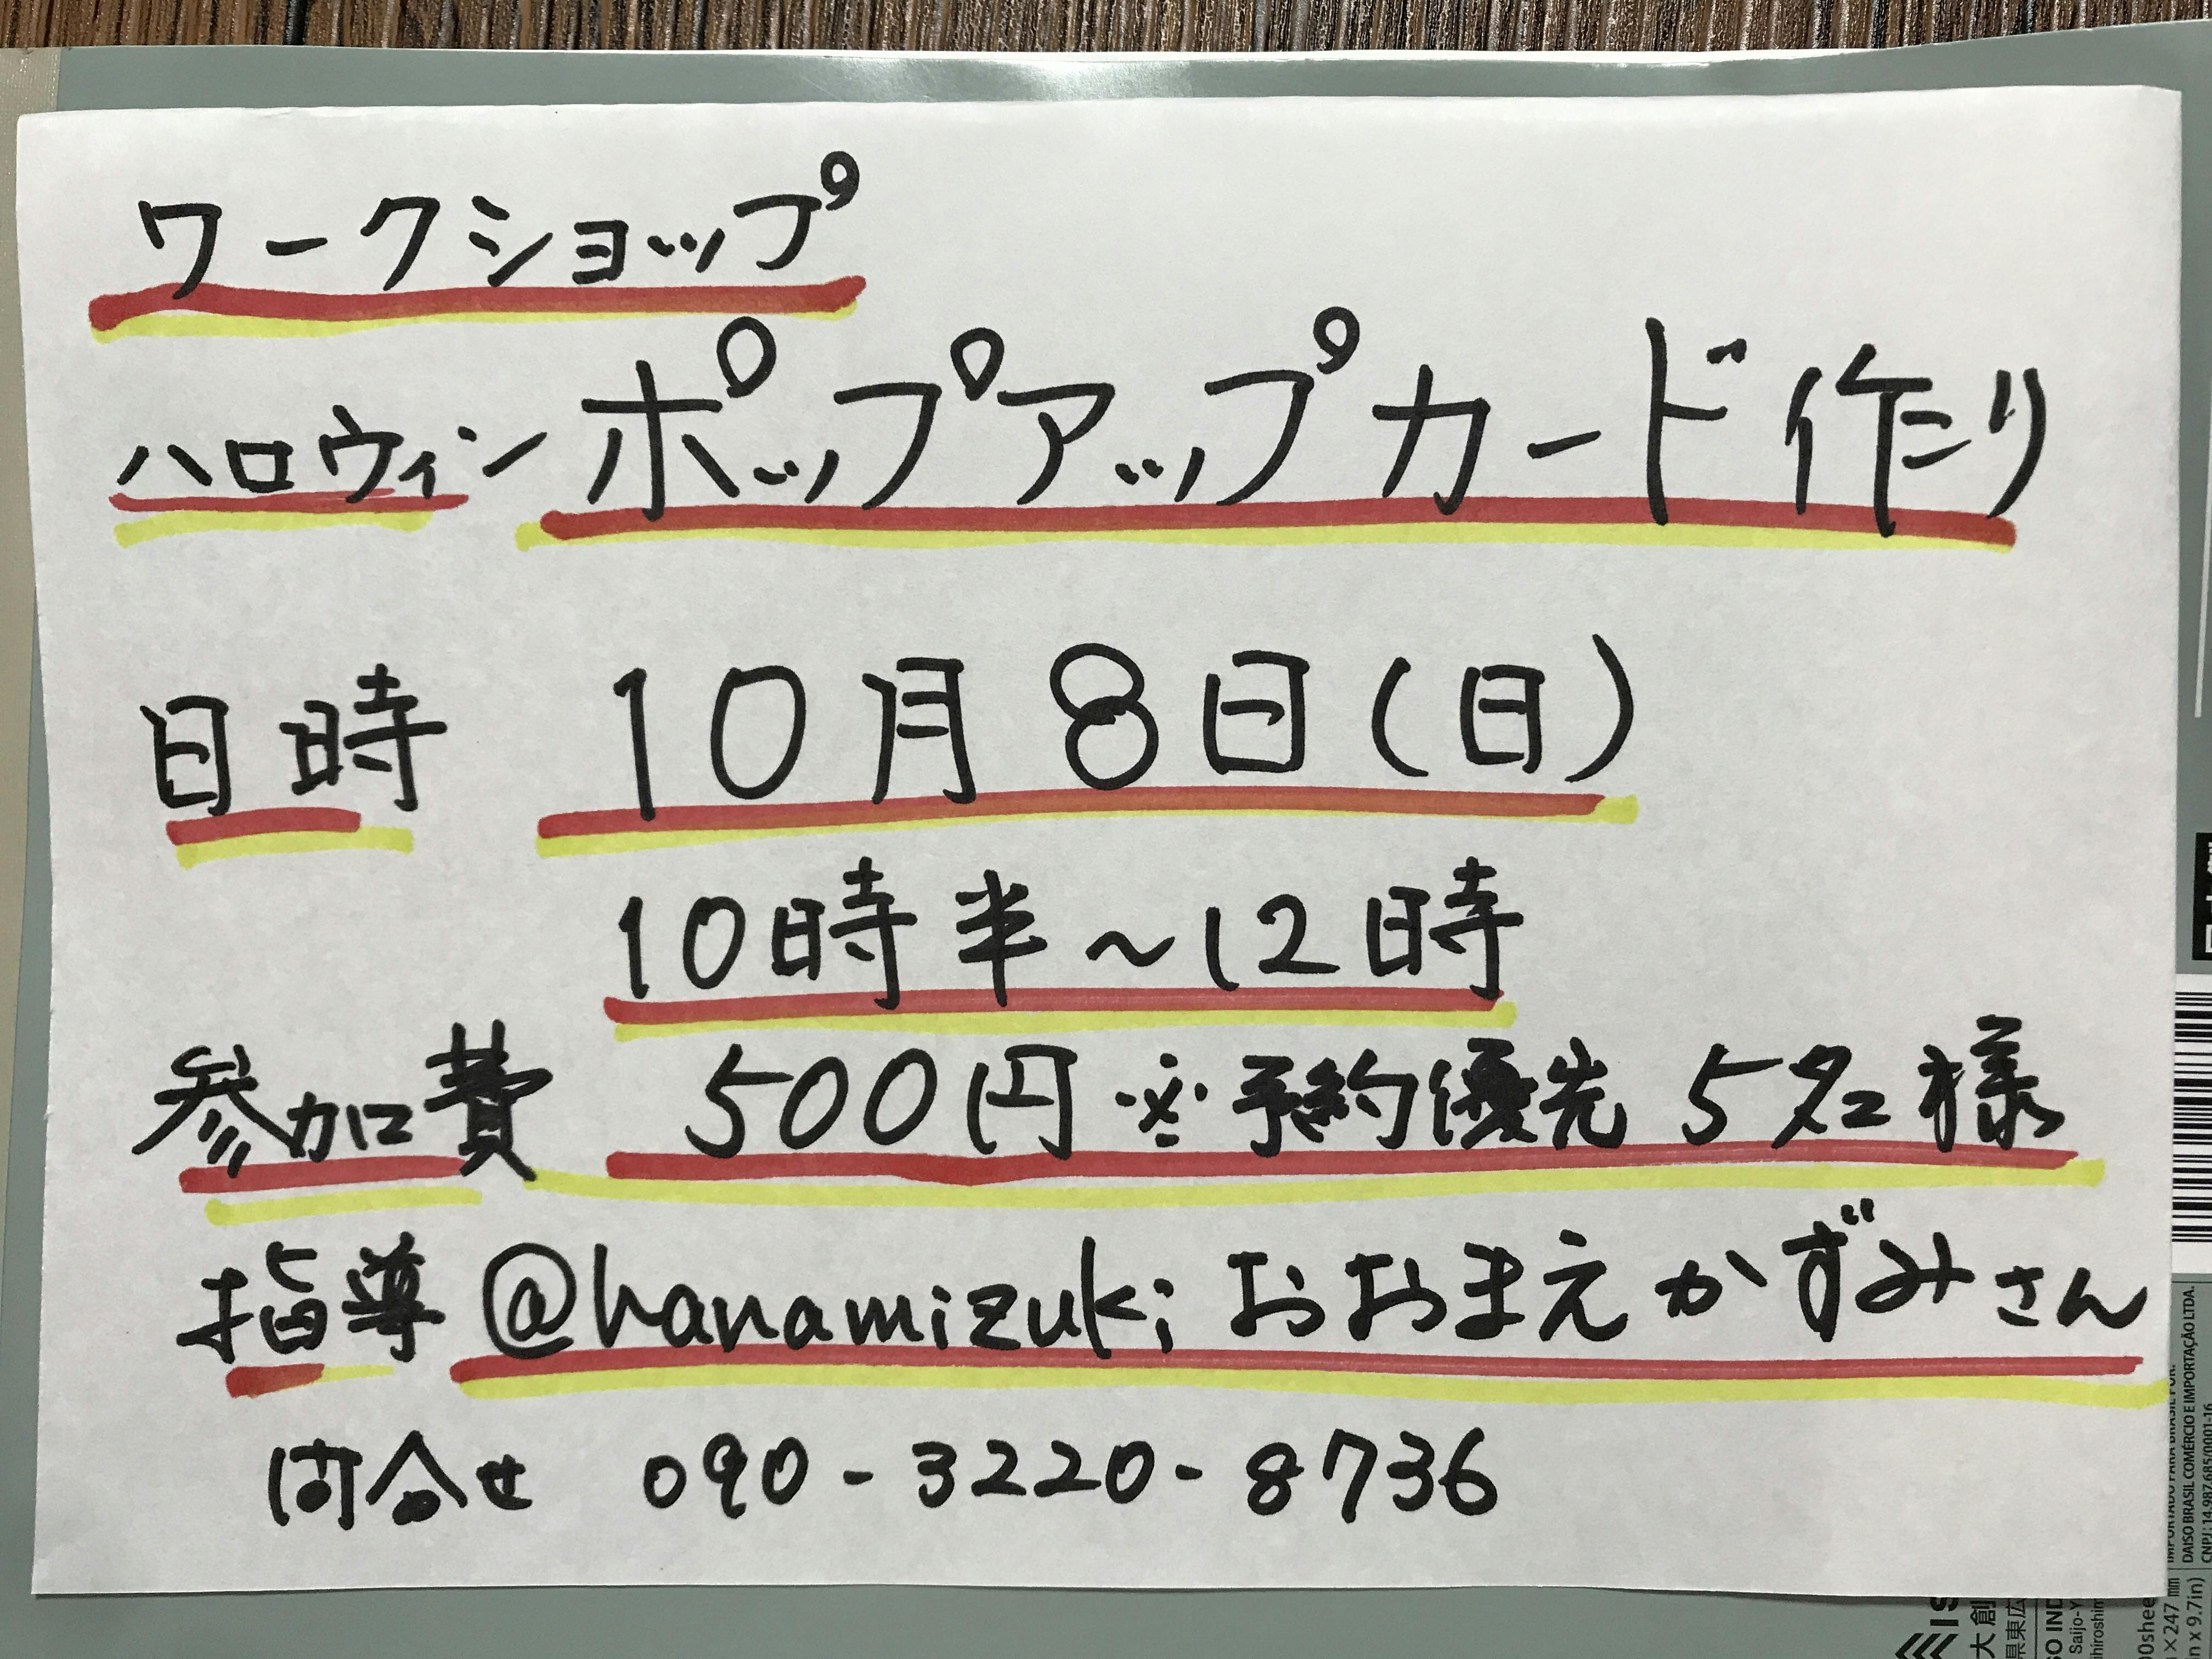 ワークショップ
ハロウィンポップアップカード作り
日時 10月8日(日)
10時半〜12時
参加費 500円 ※予約優先 5名様
指導 @hanamizuki おおまえかずみさん
問合せ 090-3220-8736
DAISO BRASIL COMÉRCIO E IMPORTAÇÃO LTDA.